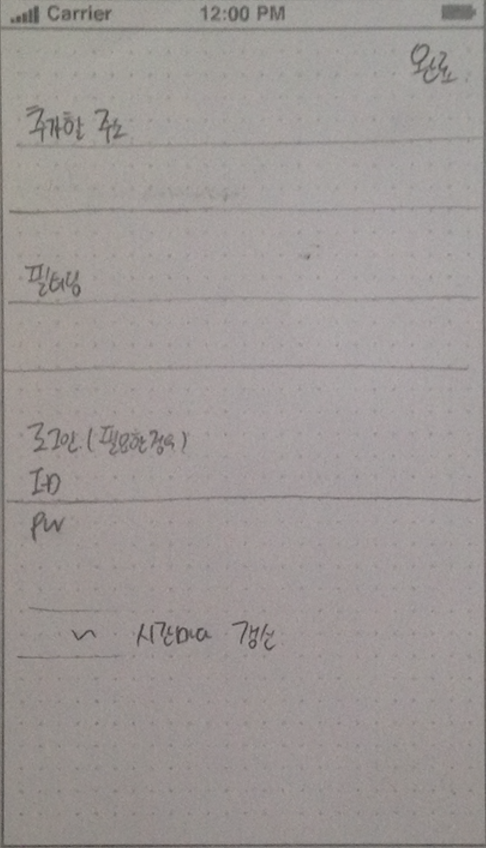 Carrier 12:00 PM
완료
추가한 주소
필터링
로그인 (필요한 경우)
ID
PW
시간마다 갱신